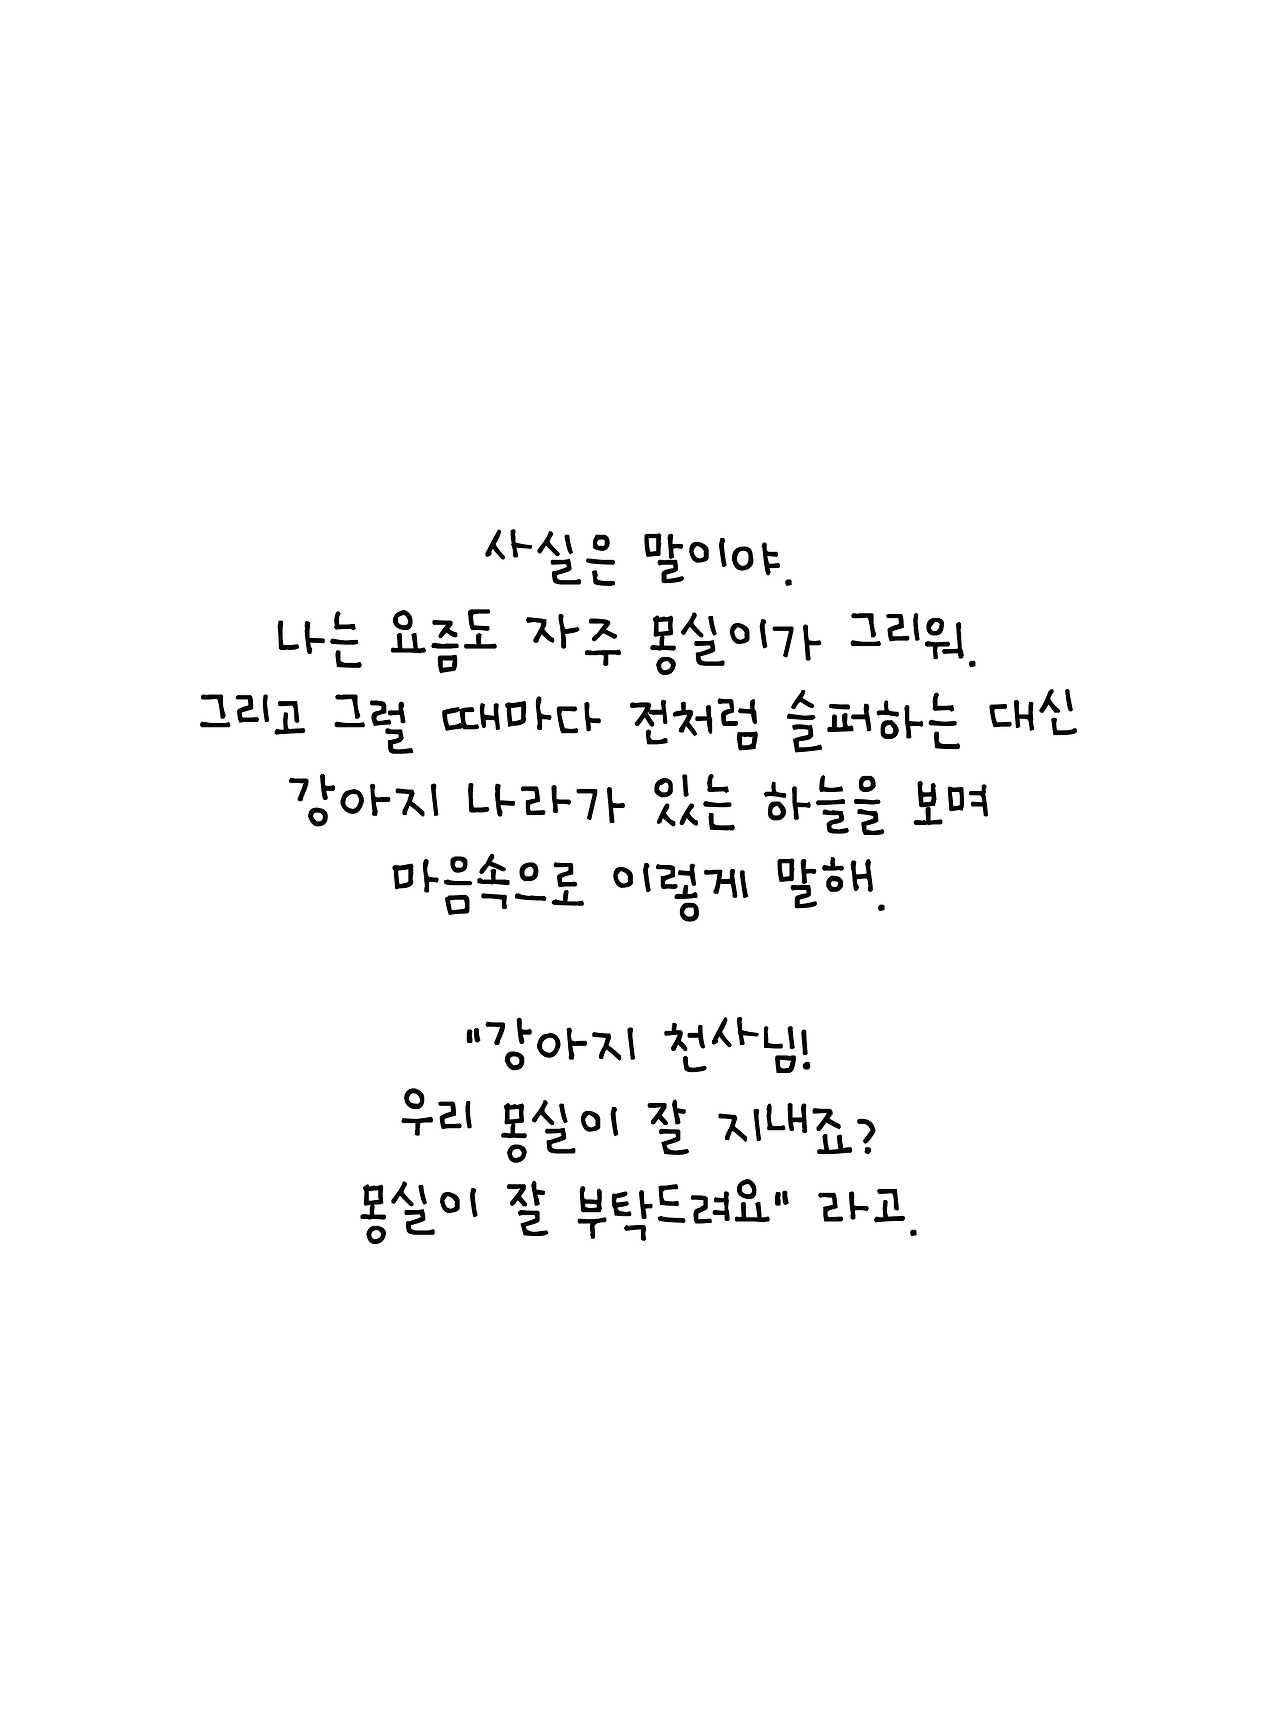 사실은 말이야.
나는 요즘도 자주 몽실이가 그리워.
그리고 그럴 때마다 전처럼 슬퍼하는 대신
강아지 나라가 있는 하늘을 보며
마음속으로 이렇게 말해.
"강아지 천사님!
우리 몽실이 잘 지내죠?
몽실이 잘 부탁드려요" 라고.